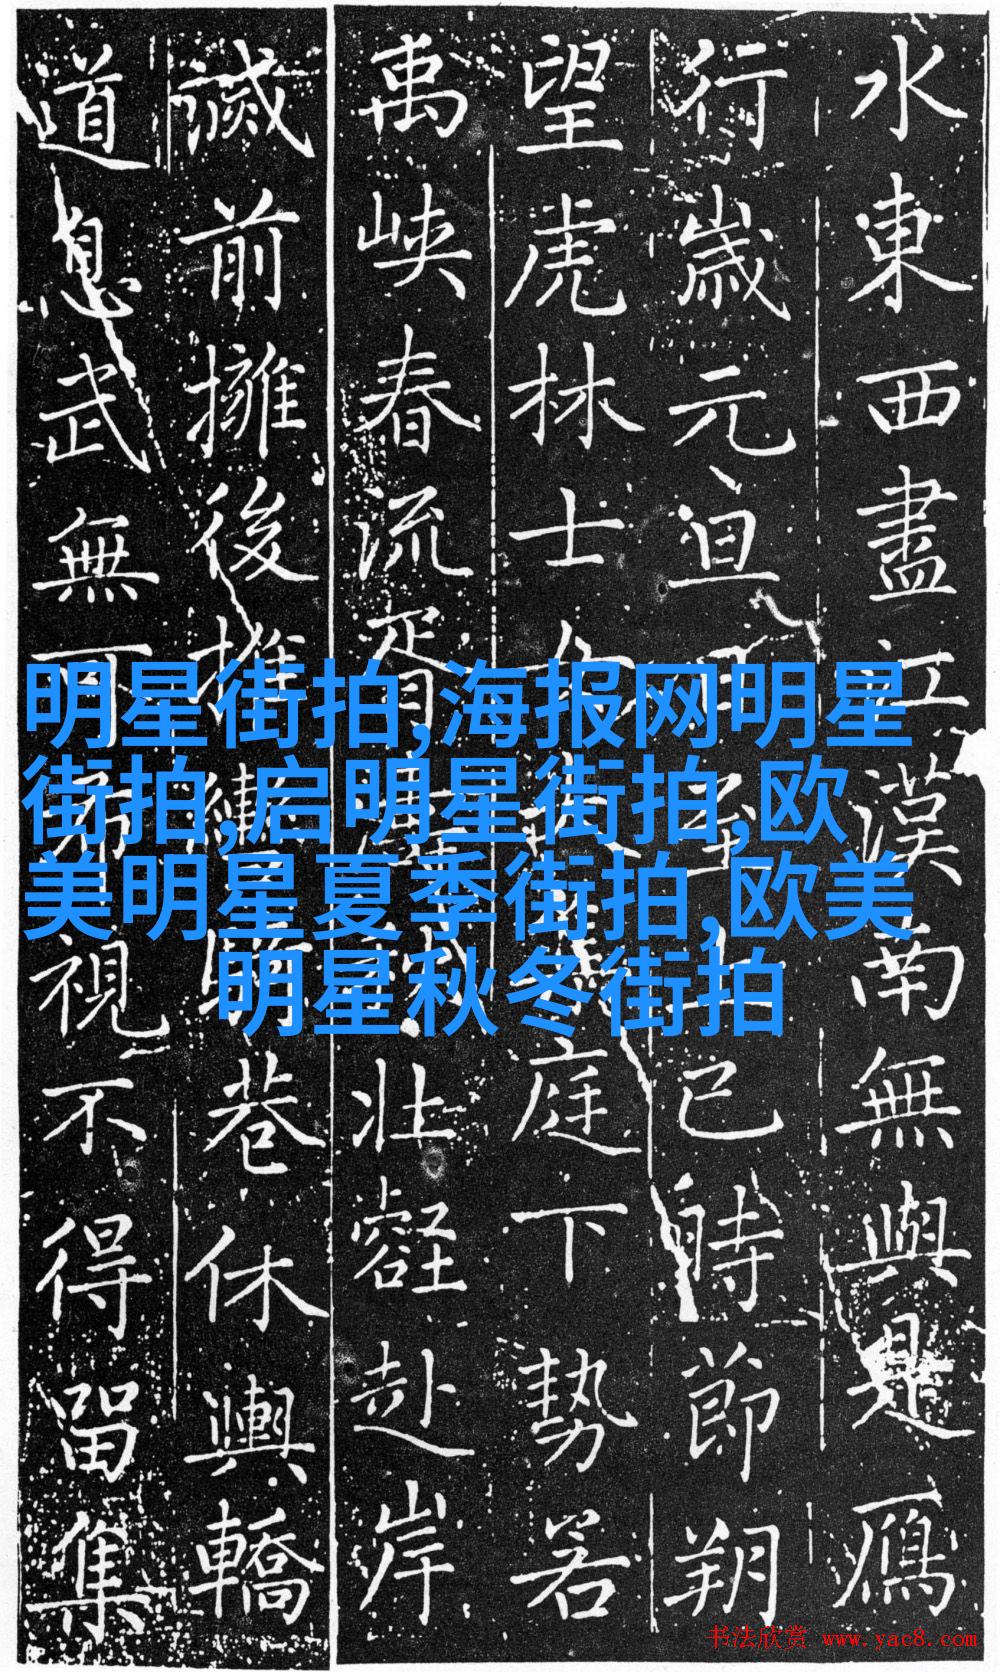 明星街拍,海报网明星
街拍,启明星街拍,欧
美明星夏季街拍,欧美
明星秋冬街拍
水東西盡江漢南無與是鴈
行歲元旦至上巳時節朔
望虎林士女庭下勢若
禹峽春流胥壯壑赴岸
滅前擁後推巷休輿轎
道息武無可視不得留集
书法欣赏 www.yac8.com